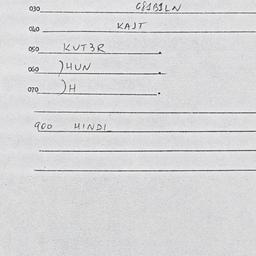 030 G81B1LN
040 KAJT
050 KUT3R .
060 )HUN .
070 )H .
900 HINDI